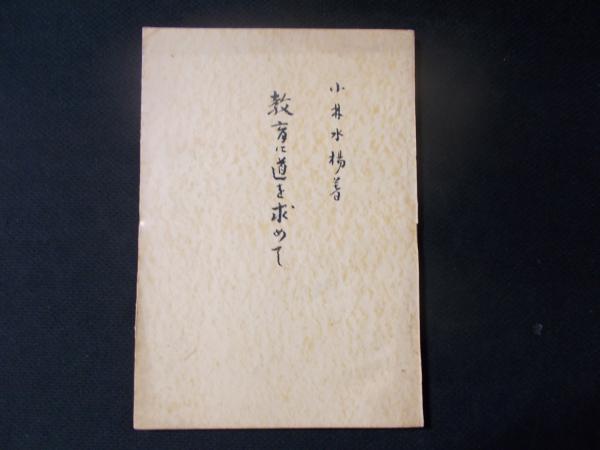 小林水楊著
教育に道を求めて